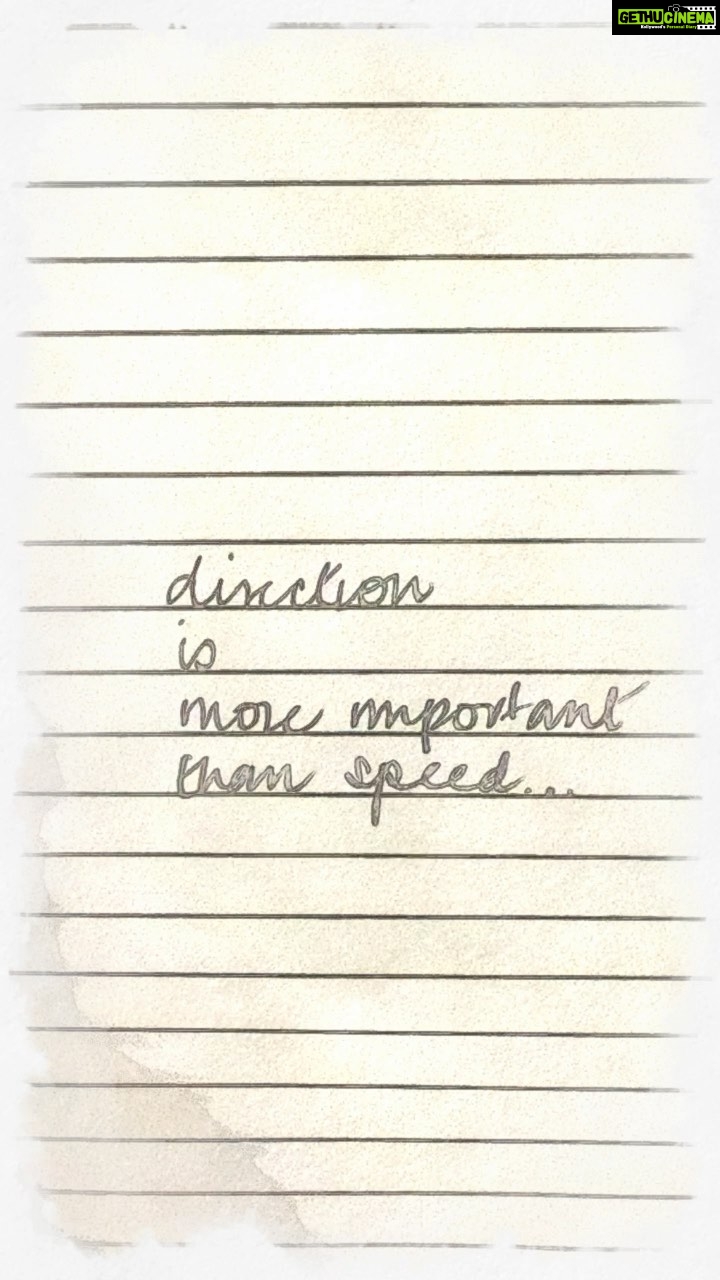 GETHUCINEMA
Kollywood's Personal Diary
direction
is
more important
than speed...